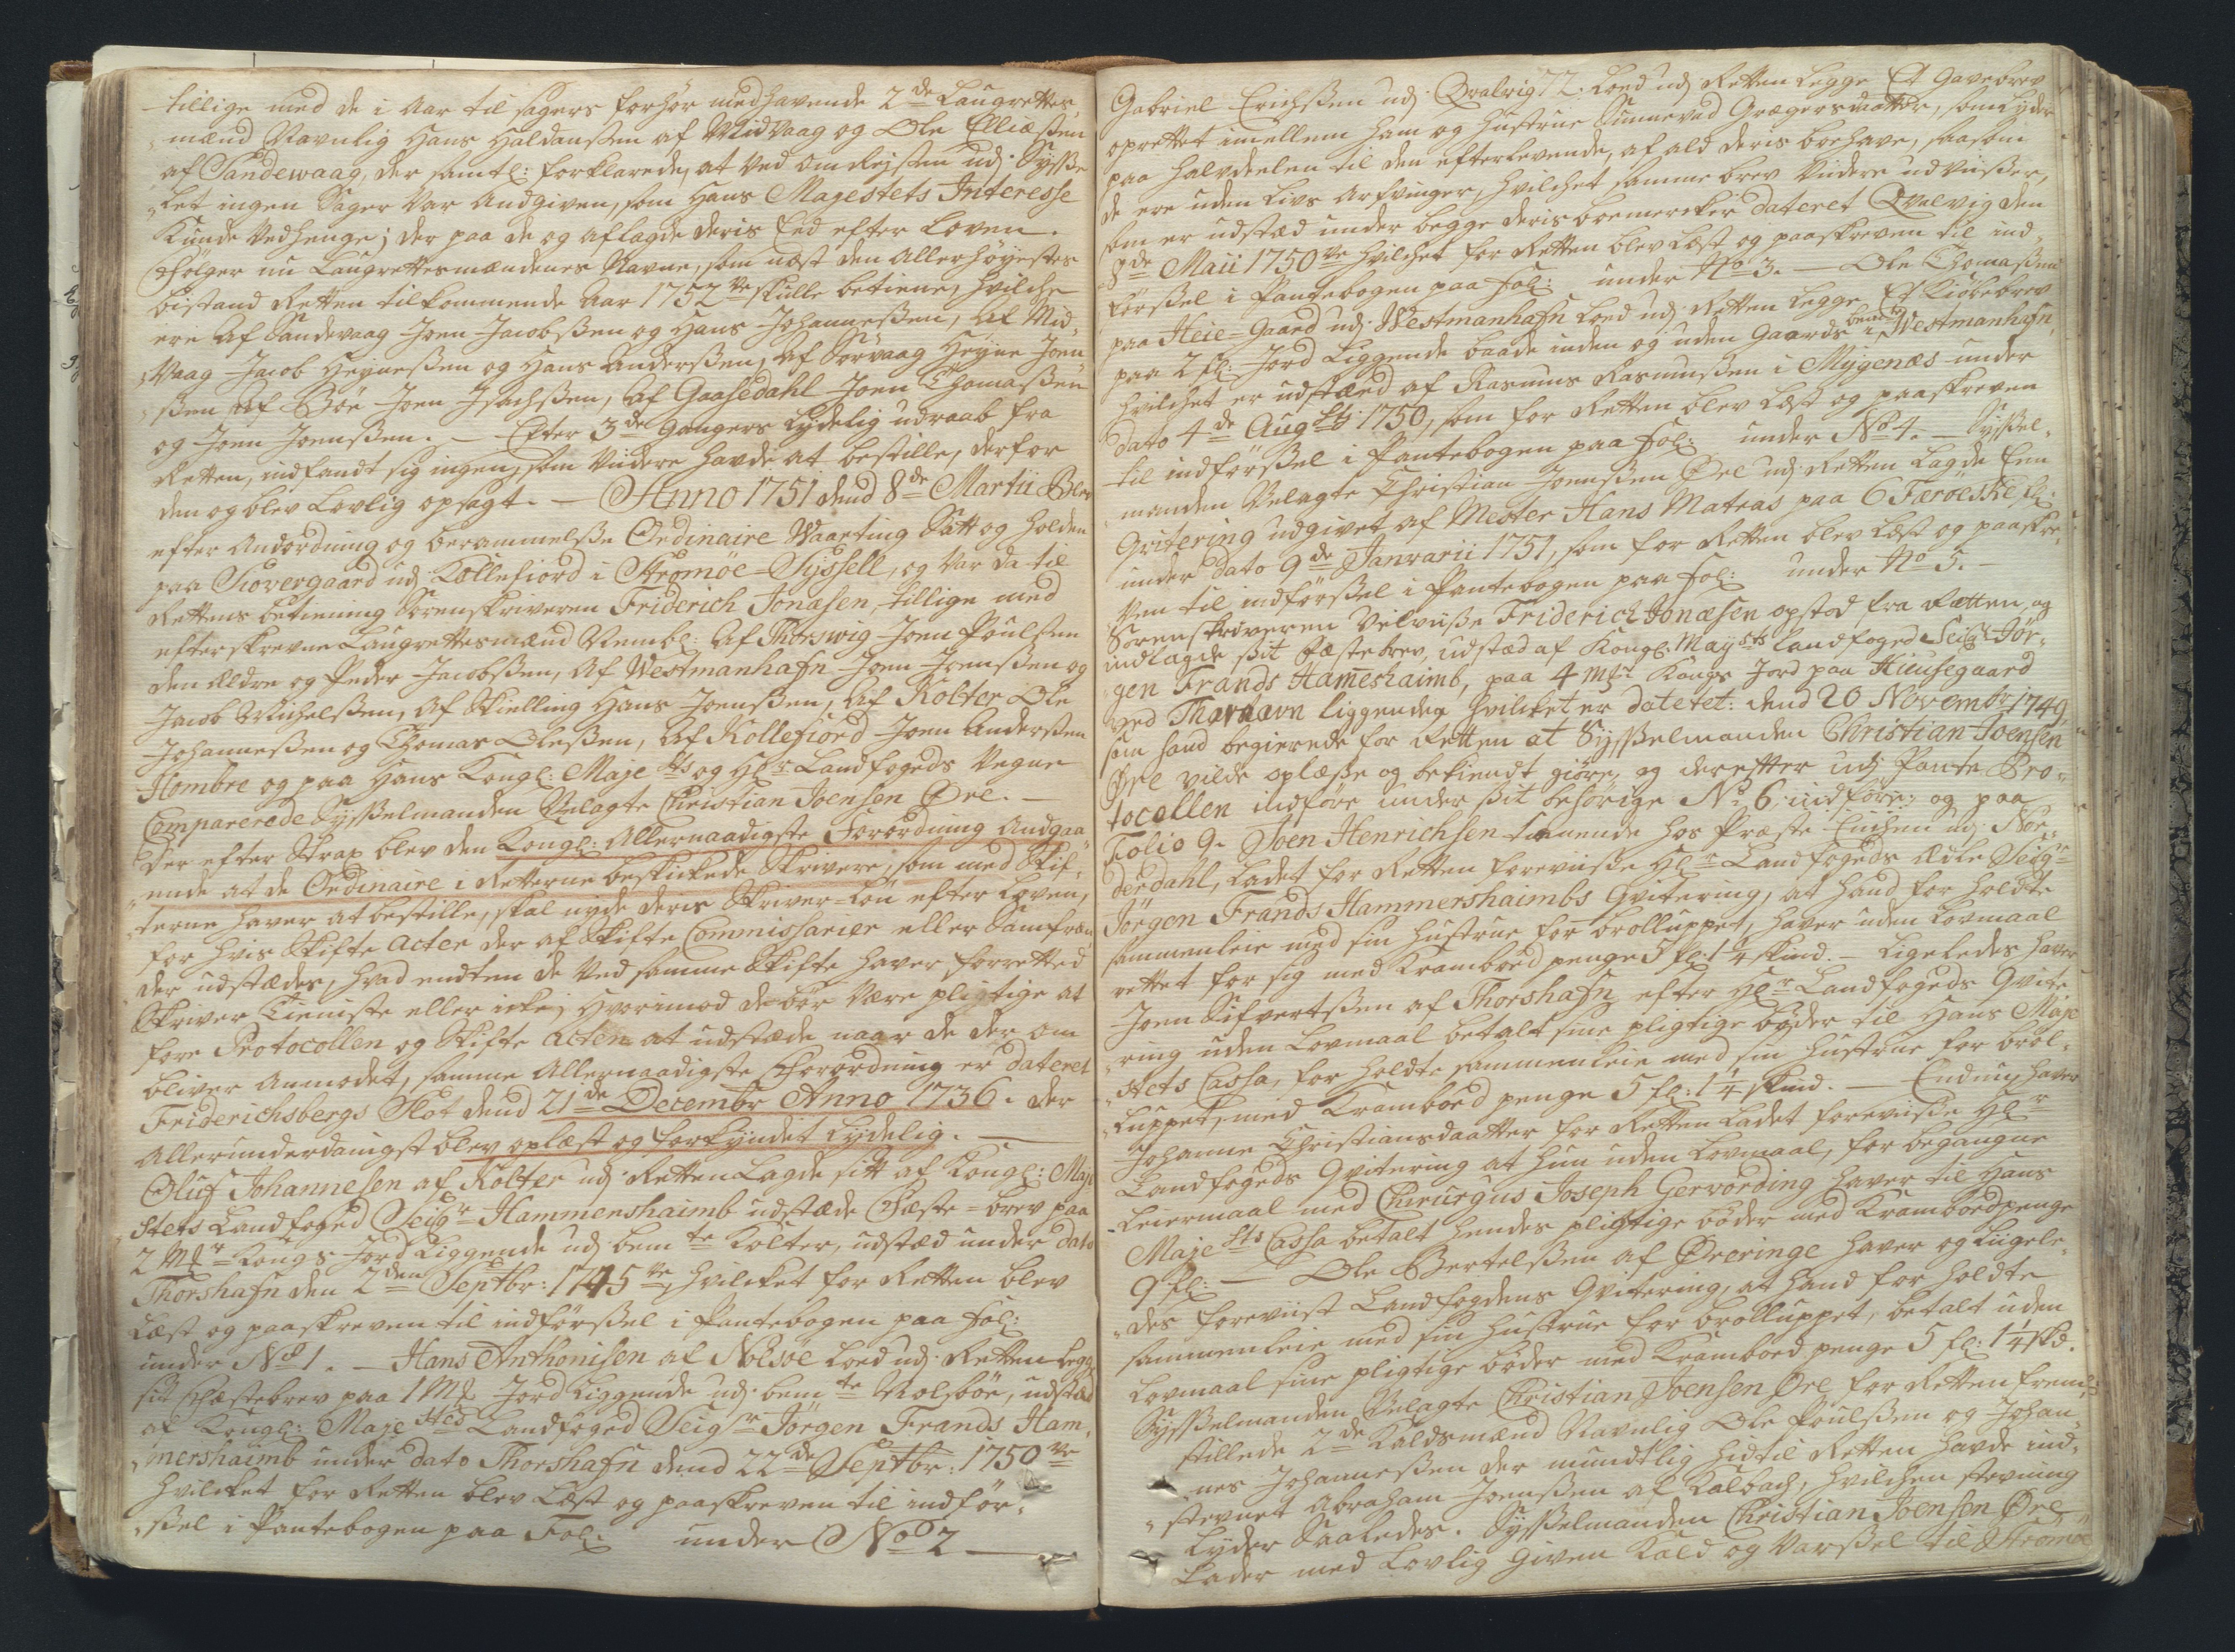 tillige med de i Aar til sagers forhör medhavende 2de Laugrettes
mænd Navnlig Hans Haldanssen af Midvaag og Ole Elliæssen
af Sandewaag, der samtl: forklarede, at ved omreisen udj Sysse
let ingen Sager var Andgiven, som Hans Mayestets Interesse
Kunde vedhenge; der paa de og aflagde deris Eed efter Loven.
Fölger nu Laugrettesmændenes Navne, som næst den Allerhöyestes
bistand Retten tilkommende Aar 1752de skulle betiene, hvilche
ere Af Sandevaag Joen Jacobssen og Hans Johannessen, Af Mid-
vaag Jacob Heynessen og Hans Anderssen, Af Sörvaag Heyne Joen-
ssen Af Böe Joen Isachssen, Af Gaasedahl Joen Thomassen
og Joen Joenssen. — Efter 3de Ganges Lydelig udraab fra
Retten, indfandt sig ingen, som viidere havde at bestille, derfor
den og blev Lovlig opsagt. — Anno 1751 dend 8de Martii Blev
efter Andordning og berammelsse Ordinaire Waarting Satt og holden
paa Siovergaard udj Kollefiord i Strömöe-Syssell, og Var da til
Rettens betiening Sorenskriveren Friderich Jonæsen, tillige med
efterskrevne Laugrettesmænd Nembl: Af Thorswig Joen Poulssen
den ældre og Peder Jacobssen, Af Westmanhafn Joen Joenssen og
Jacob Michelssen, Af Skielling Hans Joenssen, Af Kolter Ole
Johannessen og Thomas Olessen, Af Kollefiord Joen Anderssen
Hombre og paa Hans Kongl: Majests og Hl:r Landfogeds Vegne
Comparerede Sysselmanden Velagte Christian Joensen Öre. —
Der efter Strax blev den Kongl: Allernaadigste Forordning Andgaa-
ende at de Ordinaire i Retterne beskickede Skrivere, som med Skif-
terne haver at bestille, skal nyde deris Skriver-Lön efter Loven,
for hvis Skifte Acter der af Skifte Commissarier eller Samfræn
der udstædes, hvad endten de Ved samme Skifte haver forretted
Skriver Tieniste eller icke; hvorimod de bör være pligtige at
före Protocollen og Skifte Acten at udstæde naar de der om
bliver Anmodet, samme Allernaadigste Forordning er dateret
Friderichsbergs Slot dend 21de Decembr Anno 1736. der
Allerunderdanigst blev oplæst og forkyndet Lydelig. —
Oluf Johannesen af Kolter udj Retten Lagde sitt af Kongl: Maje
stets Landfoged Seigr Hammershaimb udstæde Fæste-brev paa
2 Mk Kongs Jord Liggende udj bemte Kolter, udstæd under dato
Thorshafn den 2den Septbr: 1745ve, hvilcket for Retten blev
Læst og paaskreven til indförssel i Pantebogen paa Fol:
under No 1. — Hans Anthonisen af Nolsöe Loed udj Retten Legge
sit Fæstebrev paa 1 Mk Jord Liggende udj bemte Nolssöe, udstæd
af Kongl: Majested Landfoged Seigr Jörgen Frands Ham-
mershaimb under dato Thorshafn dend 22de Septbr: 1750ve
hvilcket for Retten blev Læst og paaskreven til indför-
ssel i Pantebogen paa Fol: under No 2 —
Gabriel Erichssen udj Qvalvig Loed udj Retten Legge Et Gavebrev
oprettet imellem ham og hustrue Sunneved Grægersdaatter, som Lyder
paa halvdeelen til den efterlevende, af ald deris boehave, saasom
de ere uden Livs Arfvinger, hvilchet samme brev Viidere udviisser,
som er udstæd under begge deris boemercker dateret Qvalvig den
8de Maii 1750ve hvilchet for Retten blev Læst og paaskreven til ind-
förssel i Pantebogen paa Fol: under No 3. — Ole Thomassen
paa Heie-Gaard udj Westmanhafn Loed udj Retten Legge Et Kiöbebrev
paa 2 fl: Jord Liggende baade inden og uden Gaards i bemte Westmanhafn,
hvilchet er udstæed af Rasmus Rasmussen i Mygenæs under
dato 4de Augsti 1750, som for Retten blev Læst og paaskreven
til indförssel i Pantebogen paa Fol: under No 4. — Syssel-
manden Velagte Christian Joenssen Öre udj Retten Lagde Een
Qvitering udgivet af Mester Hans Matras paa 6 Færoeske fl:
under dato 9de Janvarii 1751, som for Retten blev Læst og paaskre-
ven til indförssel i Pantebogen paa Fol: under No 5. —
Sorenskriveren Velviise Friderich Jonæsen opstod fra Retten, og
indlagde sit Fæstebrev, udstæd af Kongl: Maysts Landfoged Seigr Jör-
gen Frands Hamershaimb, paa 4 Mk Kongs Jord paa Hiusegaard
ved Thornævn liggendeg hvilcket er datetet: dend 20 Novembr 1749,
som hand begierede for Retten at Sysselmanden Christian Joensen
Öre vilde oplæsse og bekiendt giöre, og derefter udj Pante Pro-
tocollen indföre under sit behörige No 6 indföre: og paa
Folio 9. Joen Henrichsen tienende hos Præste Enchen udj Nor-
derdahl, Ladet for Retten foreviisse Hl:r Landfogeds Ædle Seigr
Jörgen Frands Hammershaimbs Qvitering, at hand for holdte
sammenleie med sin hustrue for brolluppet, haver uden Lovmaal
rettet for sig med Krambord penge 5 fl: 1¼ skind. — Ligeledes haver
Joen Sifvertssen af Thorshafn efter Hl:r Landfogeds Qvite-
ring uden Lovmaal betalt sine pligtige böder til Hans Maje
stets Cassa, for holdte sammenleie med sin hustrue for bröl-
luppet, med Krambord penge 5 fl: 1¼ skind. — Endnu haver
Johanne Christiansdaatter for Retten Ladet foreviisse Hl:r
Landfogeds Qvitering at hun uden Lovmaal, for begangne
Leiermaal med Chirurgus Joseph Gervording haver til Hans
Majests Cassa betalt hendes pligtige böder med Krambordpenge
9 fl: — Ole Bertelssen af Öreringe haver og Liigele-
des foreviist Landfogdens Qvitering, at hand for holdte
sammenleie med sin hustrue for brolluppet, betalt uden
Lovmaal sine pligtige böder med Krambord penge 5 fl: 1¼ skd.
Sysselmanden Velagte Christian Joensen Öre for Retten frem-
stillede 2de Kaldsmænd Navnlig Ole Poulssen og Johan-
nes Johannessen der mundtlig hidtil Retten havde ind-
stevnet Abraham Joenssen af Kalbach, hvilchen stevning
Lyder Saaledes. Sysselmanden Christian Joensen Öre
Lader med Lovlig Given Kald og Varssel til Strömöe